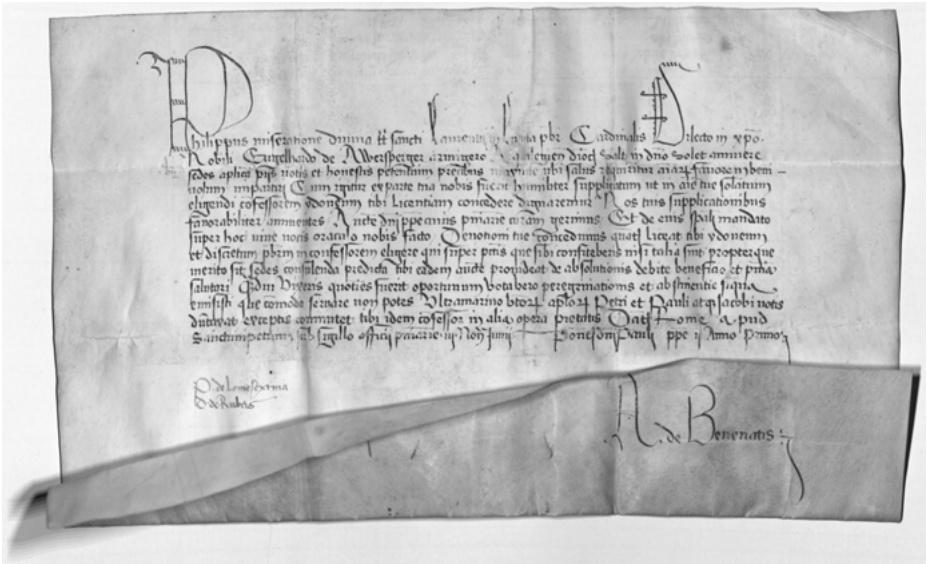 Philippus miseratione divina tt sancti Laurentii in Lucina pbr Cardinalis Dilecto in xpo
Nobili Engelhardo de armigero dioc Salt in dno Solet annuere
sedes aplica piis votis et honestis petentium precibus ubi salus requiritur aiarum favorem beni
volum impartiri Cum igitur ex parte tua nobis fuerit humiliter supplicatum ut in aie tue solatium
eligendi cofessorem ydoneum tibi licentiam concedere dignaremur Nos tuis supplicationibus
favorabiliter annuentes Aucte dni ppe cuius pniarie curam gerimus Et de eius spali mandato
super hoc vive vocis oraculo nobis facto Devotioni tue concedimus quatenus liceat tibi ydoneum
et discretum pbrm in confessorem eligere qui super pctis que sibi confiteberis nisi talia sint propter que
merito sit sedes consulenda predicta tibi eadem aucte provideat de absolutionis debite beneficio et pnia
salutari Quam diu vixeris quoties fuerit oportunum Vota vero peregrinationis et abstinentie siqua
emisisti que comode servare non potes Ultramarino btorum aplorum Petri et Pauli atque Jacobi votis
dumtaxat exceptis comutet tibi idem cofessor in alia opera pietatis Dat Rome apud
Sanctum petrum sub sigillo officii pniarie iij Non Junii Pont dni Pauli ppe ii Anno Primo
de Rubeis
A. de Benenatis